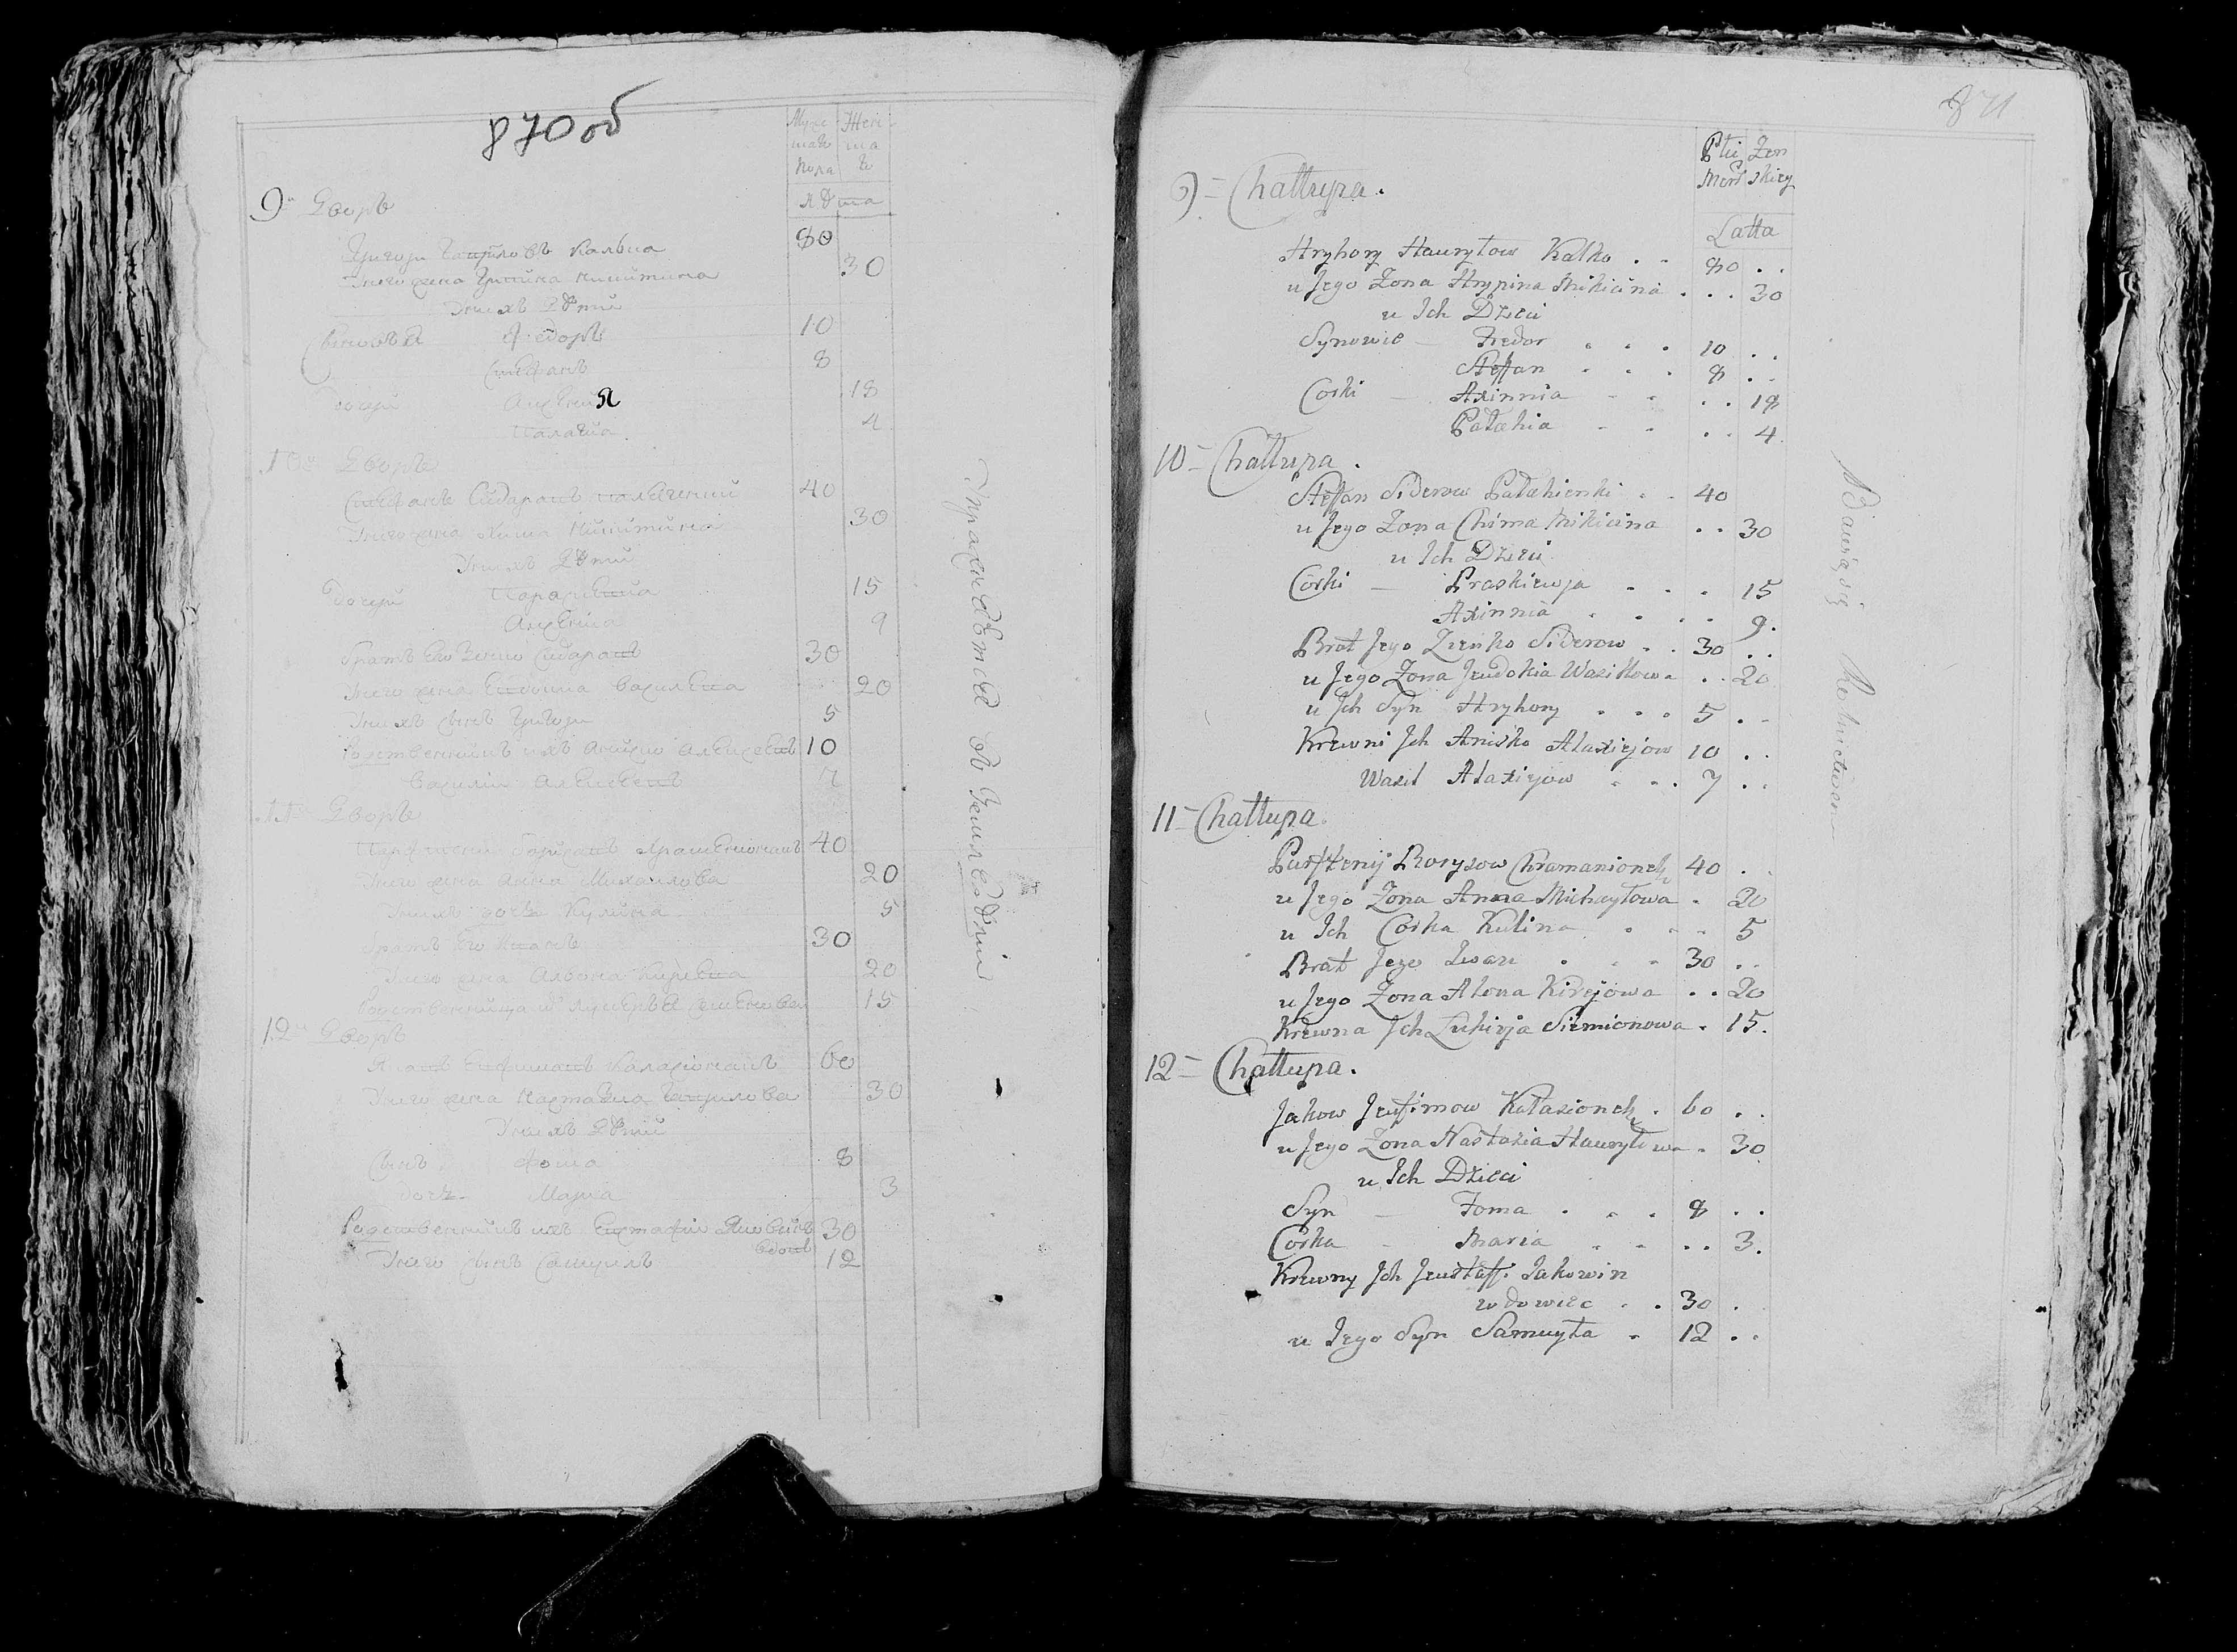 870 об
Муже Жен
ска ска
пола го
лѣта
9й Дворъ
Григори Гаврыловъ Калька 80
Унего жена Грипина Микитина 30
Уних дѣти
Сыновья Федоръ 10
Стефанъ 8
дочери Аксения 18
Палагия 4
10й Дворъ
Стефанъ Сидаравъ 40
Унего жена Хима Микитина 30
Уних дѣти
дочери Параскевия 15
Аксения 9
братъ Его Зенко Сидаравъ 30
Унего жена Евдокия Василева 20
Уних сынъ Григори 5
родственникъ ихъ Анишко Алексеевъ 10
Василей Алексеевъ 7
11й Дворъ
Парфиени Барисавъ 40
Унего жена Анна Михаилова 20
Уних дочь Кулина 5
братъ Его Иванъ 30
Унего жена Алиона Кирѣева 20
Родственница их Лукерья Семенова 15
12й Дворъ
Яковъ Евфимавъ 60
Унего жена Настазия Гаврилова 30
Уних дѣти
Сынъ Фома 8
дочь Мария 3
Родственникъ ихъ Евстафи Яковинъ 30
вдовъ
Унего сынъ Самуилъ 12
Упражняются въ Земледѣлии
871
Płci Zen
Męs skiey
Latta
9= Chattupa.
Hryhory Hawryłow Kalko . . 80 . .
u Jego Zona Hrypina Mikicina . . . 30
u Ich Dzieci
Synowie — Fiedor . . . 10 . .
Steffan . . . 8 . .
Corki — Axinnia . . . . 18
Pałahia . . . . 4.
10= Chattupa.
Steffan Siderow Pałahienki . . 40
u Jego Zona Chima Mikicina . . 30
u Ich Dzieci
Corki — Praskiewja . . . 15
Axinnia . . . . 9.
Brat Jego Zienko Siderow . . 30 . .
u Jego Zona Jeudokia Wasilowa . . 20
u Ich Syn Hryhory . . . 5 . .
Krewni Ich Aniśko Alaxiejow 10 . .
Wasil Alaxiejow . . . 7 . .
11= Chattupa.
Parffenij Borysow Chramanionek 40 . .
u Jego Zona Anna Michayłowa . 20
u Ich Corka Kulina . . . 5
Brat Jego Iwan . . . 30 . .
u Jego Zona Alona Kirejowa . . 20
Krewna Ich Łukirja Siemionowa . 15.
12= Chattupa.
Jakow Jeufimow Kałasionek . 60 . .
u Jego Zona Nastazia Hawryłowa . 30
u Ich Dzieci
Syn — Foma . . . 8 . .
Corka — Maria . . . . 3.
Krewny Ich Jeustaff. Jakowin
wdowiec . . 30 .
u Jego Syn Samuyła . 12 . .
Bawią się Rolnictwem